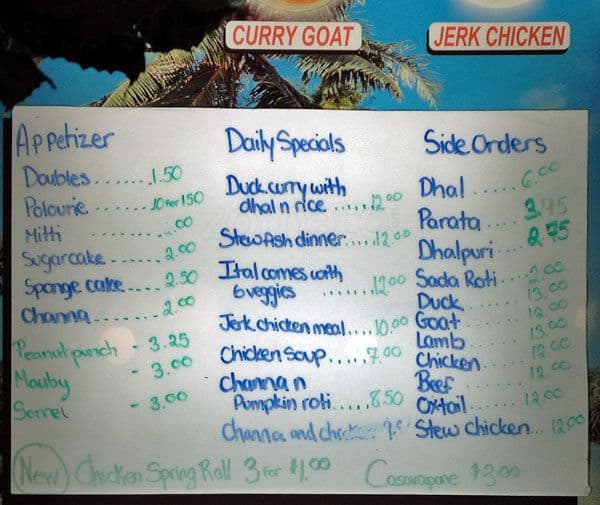 CURRY GOAT
JERK CHICKEN
Appetizer
Doubles.......1.50
Polourie.......10 For 150
Mitti ........ .00
Sugarcake......2.00
Sponge cake....2.50
Channa........2.00
Peanut punch - 3.25
Mauby - 3.00
Sorrel - 3.00
Daily Specials
Duck curry with
dhal n rice......12.00
Stewfish dinner....12.00
Ital comes with
6 veggies .......12.00
Jerk chicken meal....10.00
Chicken Soup......7.00
Channa n
Pumpkin roti.....8.50
Channa and
Side Orders
Dhal.....6.00
Parata...3.45
Dhalpuri...2.75
Sada Roti...2.00
Duck ...... 13.00
Goat....... 12.00
Lamb ...... 13.00
Chicken .... 12.00
Beef ...... 12.00
Oxtail...... 12.00
Stew Chicken... 12.00
(New) Chicken Spring Roll 3 For $1.00
Cassavapone $3.00